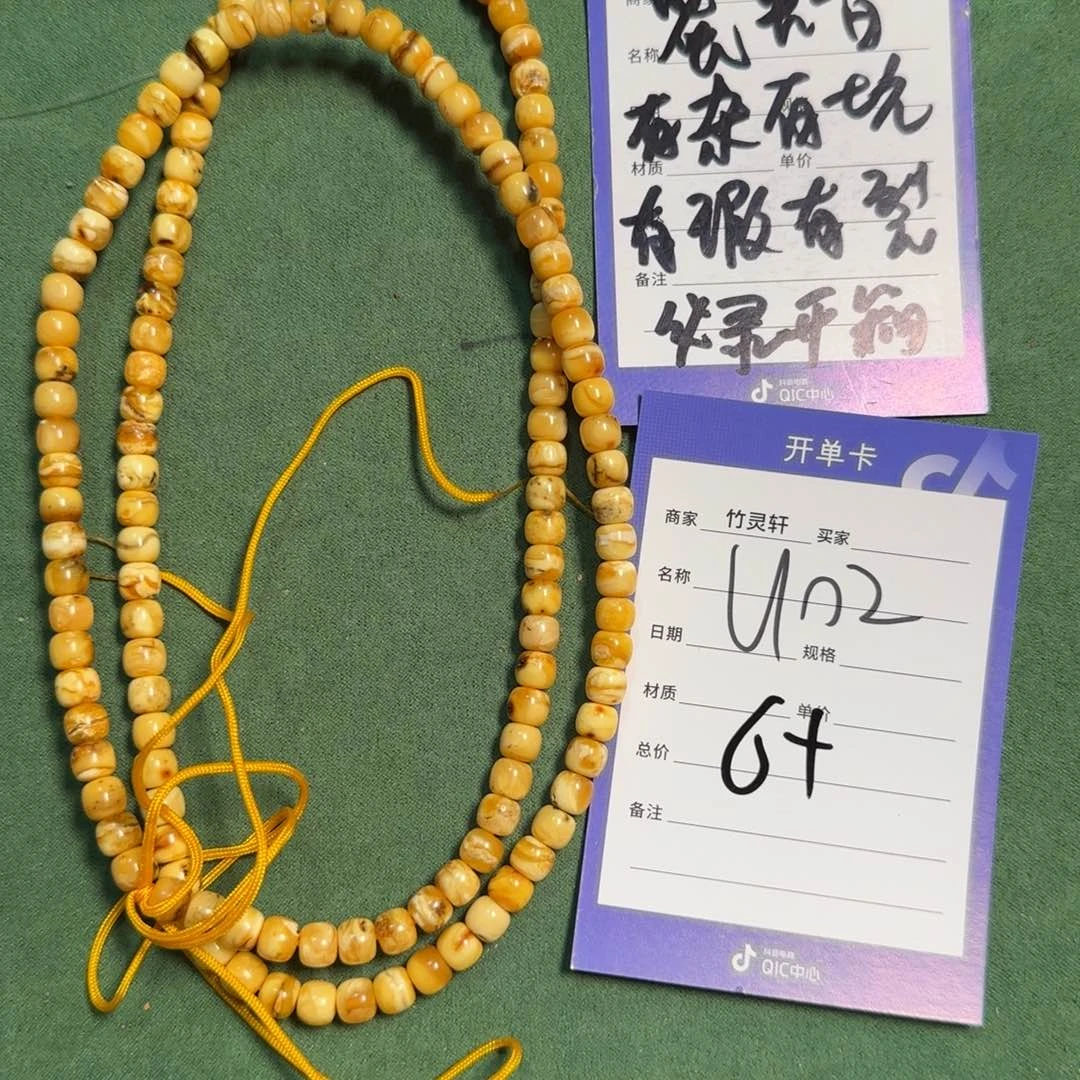 名称
有杂有坑
材质 单价
有瑕有裂
备注
必录开箱
抖音电商
QIC中心
开单卡
商家 竹灵轩 买家
名称
日期 规格
材质 单价
6+
总价
备注
抖音电商
QIC中心